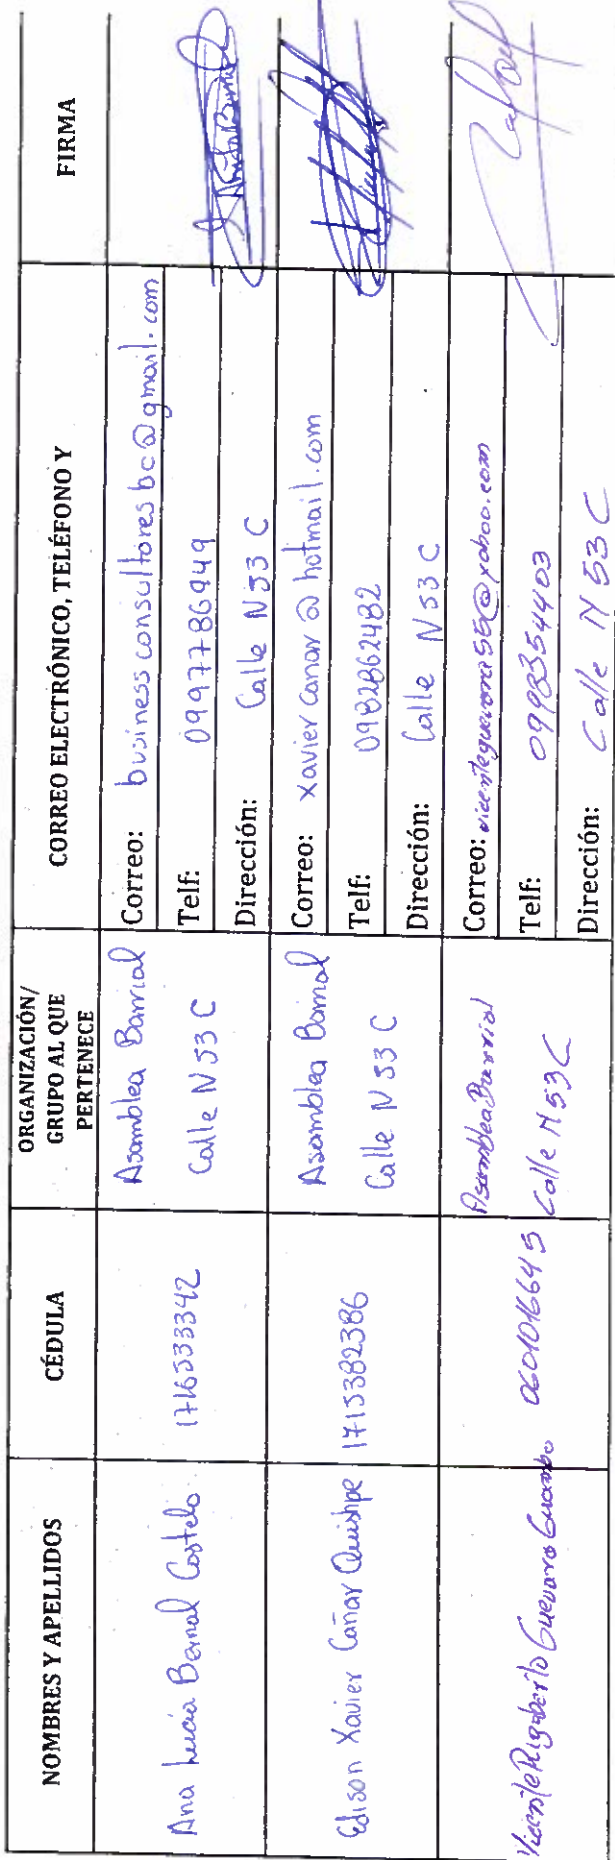 NOMBRES Y APELLIDOS
CÉDULA
ORGANIZACIÓN/
GRUPO AL QUE
PERTENECE
CORREO ELECTRÓNICO, TELÉFONO Y
FIRMA
Ana Lucía Bernal Costelo
1716533342
Asamblea Barrial
Calle N 53 C
Correo: business consultores bc@gmail.com
Telf: 0997786949
Dirección: Calle N 53 C
Edison Xavier Cañar Quishpe
1715382386
Asamblea Barrial
Calle N 53 C
Correo: xavier canar @ hotmail.com
Telf: 0982862482
Dirección: Calle N 53 C
Vicente Rigoberto Guevara Guambo
0601016645
Asamblea Barrial
Calle N 53 C
Correo: vicenteguevara56@yahoo.com
Telf: 0998354403
Dirección: Calle N 53 C